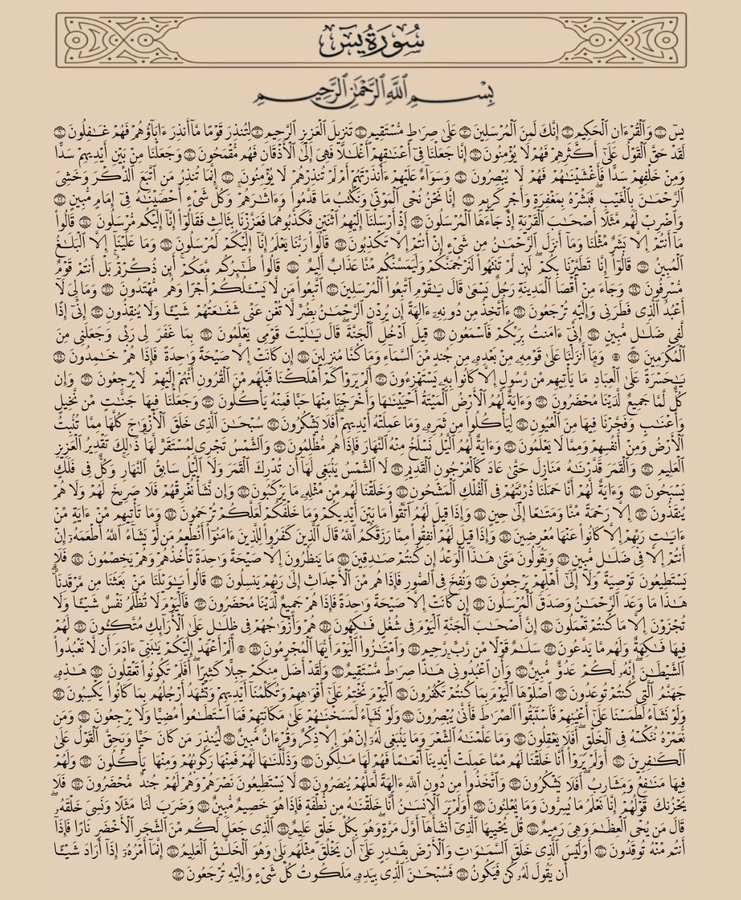 سورة يس
بسم الله الرحمن الرحيم
يس والقرءان الحكيم إنك لمن المرسلين على صراط مستقيم تنزيل العزيز الرحيم لتنذر قوما ما أنذر ءاباؤهم فهم غافلون
لقد حق القول على أكثرهم فهم لا يؤمنون إنا جعلنا في أعناقهم أغلالا فهي إلى الأذقان فهم مقمحون وجعلنا من بين أيديهم سدا
ومن خلفهم سدا فأغشيناهم فهم لا يبصرون وسواء عليهم ءأنذرتهم أم لم تنذرهم لا يؤمنون إنما تنذر من اتبع الذكر وخشي
الرحمان بالغيب فبشره بمغفرة وأجر كريم إنا نحن نحي الموتى ونكتب ما قدموا وءاثارهم وكل شيء أحصيناه في إمام مبين
واضرب لهم مثلا أصحاب القرية إذ جاءها المرسلون إذ أرسلنا إليهم اثنين فكذبوهما فعززنا بثالث فقالوا إنا إليكم مرسلون قالوا
ما أنتم إلا بشر مثلنا وما أنزل الرحمان من شيء إن أنتم إلا تكذبون قالوا ربنا يعلم إنا إليكم لمرسلون وما علينا إلا البلاغ
المبين قالوا إنا تطيرنا بكم لئن لم تنتهوا لنرجمنكم وليمسنكم منا عذاب أليم قالوا طائركم معكم أئن ذكرتم بل أنتم قوم
مسرفون وجاء من أقصا المدينة رجل يسعى قال ياقوم اتبعوا المرسلين اتبعوا من لا يسئلكم أجرا وهم مهتدون وما لي لا
أعبد الذي فطرني وإليه ترجعون ءأتخذ من دونه ءالهة إن يردن الرحمان بضر لا تغن عني شفاعتهم شيئا ولا ينقذون إني إذا
لفي ضلال مبين إني ءامنت بربكم فاسمعون قيل ادخل الجنة قال ياليت قومي يعلمون بما غفر لي ربي وجعلني من
المكرمين وما أنزلنا على قومه من بعده من جند من السماء وما كنا منزلين إن كانت إلا صيحة واحدة فإذا هم خامدون
ياحسرة على العباد ما يأتيهم من رسول إلا كانوا به يستهزءون ألم يروا كم أهلكنا قبلهم من القرون أنهم إليهم لا يرجعون وإن
كل لما جميع لدينا محضرون وءاية لهم الأرض الميتة أحييناها وأخرجنا منها حبا فمنه يأكلون وجعلنا فيها جنات من نخيل
وأعناب وفجرنا فيها من العيون ليأكلوا من ثمره وما عملته أيديهم أفلا يشكرون سبحان الذي خلق الأزواج كلها مما تنبت
الأرض ومن أنفسهم ومما لا يعلمون وءاية لهم اليل نسلخ منه النهار فإذا هم مظلمون والشمس تجري لمستقر لها ذالك تقدير العزيز
العليم والقمر قدرناه منازل حتى عاد كالعرجون القديم لا الشمس ينبغي لها أن تدرك القمر ولا اليل سابق النهار وكل في فلك
يسبحون وءاية لهم أنا حملنا ذريتهم في الفلك المشحون وخلقنا لهم من مثله ما يركبون وإن نشأ نغرقهم فلا صريخ لهم ولا هم
ينقذون إلا رحمة منا ومتاعا إلى حين وإذا قيل لهم اتقوا ما بين أيديكم وما خلفكم لعلكم ترحمون وما تأتيهم من ءاية من
ءايات ربهم إلا كانوا عنها معرضين وإذا قيل لهم أنفقوا مما رزقكم الله قال الذين كفروا للذين ءامنوا أنطعم من لو يشاء الله أطعمه إن
أنتم إلا في ضلال مبين ويقولون متى هاذا الوعد إن كنتم صادقين ما ينظرون إلا صيحة واحدة تأخذهم وهم يخصمون فلا
يستطيعون توصية ولا إلى أهلهم يرجعون ونفخ في الصور فإذا هم من الأجداث إلى ربهم ينسلون قالوا ياويلنا من بعثنا من مرقدنا
هاذا ما وعد الرحمان وصدق المرسلون إن كانت إلا صيحة واحدة فإذا هم جميع لدينا محضرون فاليوم لا تظلم نفس شيئا ولا
تجزون إلا ما كنتم تعملون إن أصحاب الجنة اليوم في شغل فاكهون هم وأزواجهم في ظلال على الأرائك متكئون لهم
فيها فاكهة ولهم ما يدعون سلام قولا من رب رحيم وامتازوا اليوم أيها المجرمون ألم أعهد إليكم يابني ءادم أن لا تعبدوا
الشيطان إنه لكم عدو مبين وأن اعبدوني هاذا صراط مستقيم ولقد أضل منكم جبلا كثيرا أفلم تكونوا تعقلون هاذه
جهنم التي كنتم توعدون اصلوها اليوم بما كنتم تكفرون اليوم نختم على أفواههم وتكلمنا أيديهم وتشهد أرجلهم بما كانوا يكسبون
ولو نشاء لطمسنا على أعينهم فاستبقوا الصراط فأنى يبصرون ولو نشاء لمسخناهم على مكانتهم فما استطاعوا مضيا ولا يرجعون ومن
نعمره ننكسه في الخلق أفلا يعقلون وما علمناه الشعر وما ينبغي له إن هو إلا ذكر وقرءان مبين لينذر من كان حيا ويحق القول على
الكافرين أولم يروا أنا خلقنا لهم مما عملت أيدينا أنعاما فهم لها مالكون وذللناها لهم فمنها ركوبهم ومنها يأكلون ولهم
فيها منافع ومشارب أفلا يشكرون واتخذوا من دون الله ءالهة لعلهم ينصرون لا يستطيعون نصرهم وهم لهم جند محضرون فلا
يحزنك قولهم إنا نعلم ما يسرون وما يعلنون أولم ير الإنسان أنا خلقناه من نطفة فإذا هو خصيم مبين وضرب لنا مثلا ونسي خلقه
قال من يحي العظام وهي رميم قل يحييها الذي أنشأها أول مرة وهو بكل خلق عليم الذي جعل لكم من الشجر الأخضر نارا فإذا
أنتم منه توقدون أوليس الذي خلق السماوات والأرض بقادر على أن يخلق مثلهم بلى وهو الخلاق العليم إنما أمره إذا أراد شيئا
أن يقول له كن فيكون فسبحان الذي بيده ملكوت كل شيء وإليه ترجعون